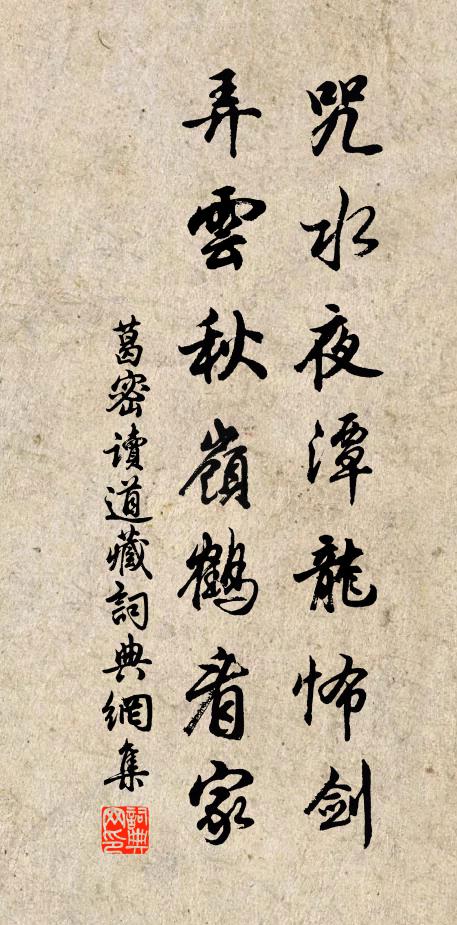 咒水夜潭龍怖剑
弄雲秋嶺鶴看家
葛密讀道藏詞典網集
詞典网印